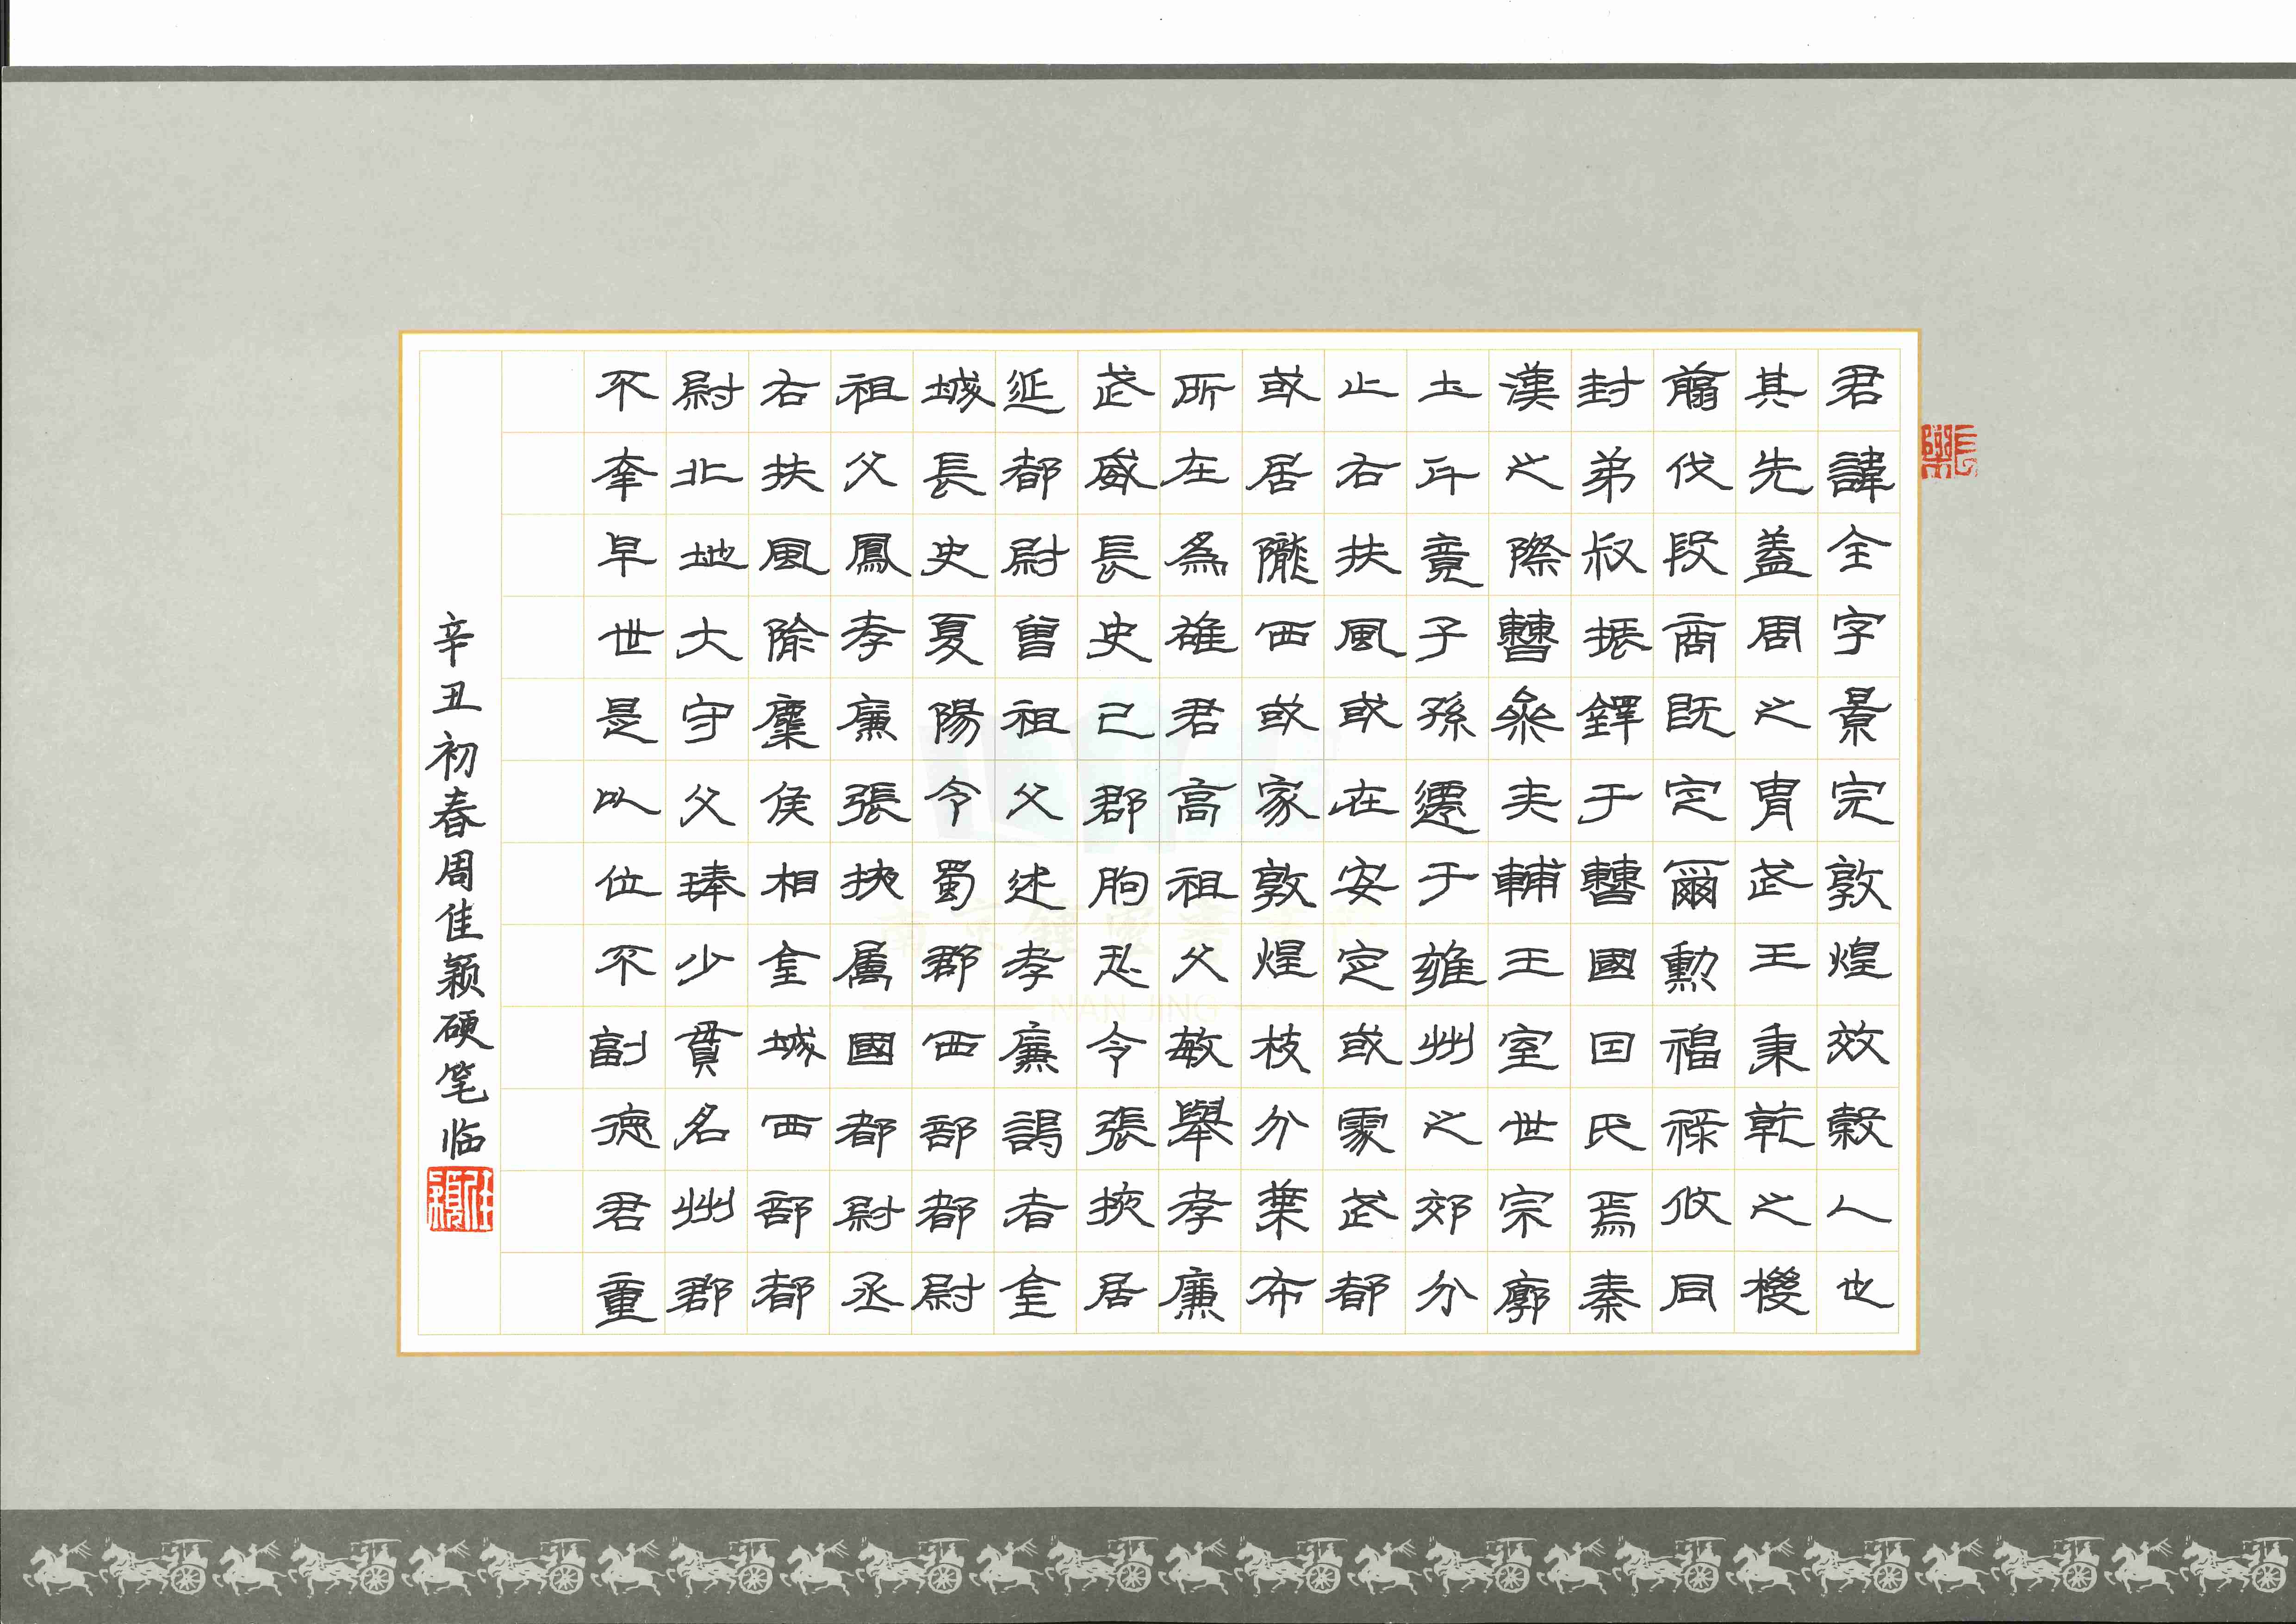 君諱全字景完敦煌效穀人也
其先蓋周之冑武王秉乾之機
翦伐殷商既定爾勳福祿攸同
封弟叔振鐸于曹國因氏焉秦
漢之際曹參夾輔王室世宗廓
土斥竟子孫遷于雍州之郊分
止右扶風或在安定或處武都
或居隴西或家敦煌枝分葉布
所在為雄君高祖父敏舉孝廉
武威長史巴郡朐忍令張掖居
延都尉曾祖父述孝廉謁者金
城長史夏陽令蜀郡西部都尉
祖父鳳孝廉張掖屬國都尉丞
右扶風隃麋侯相金城西部都
尉北地大守父琫少貫名州郡
不幸早世是以位不副德君童
辛丑初春周佳颖硬笔临
佳颖
南京
NAN JING